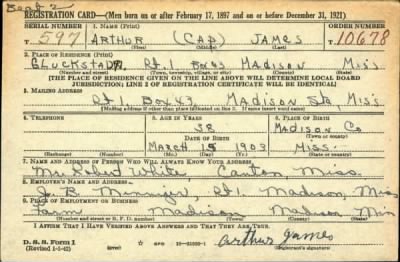 REGISTRATION CARD—(Men born on or after February 17, 1897 and on or before December 31, 1921)
SERIAL NUMBER 1. NAME (Print) ORDER NUMBER
T 597 ARTHUR (CAP) JAMES T 10678
(First) (Middle) (Last)
2. PLACE OF RESIDENCE (Print)
Rt. 1 Box 43 Madison Miss
(Number and street) (Town, township, village, or city) (County) (State)
[THE PLACE OF RESIDENCE GIVEN ON THE LINE ABOVE WILL DETERMINE LOCAL BOARD
JURISDICTION; LINE 2 OF REGISTRATION CERTIFICATE WILL BE IDENTICAL]
3. MAILING ADDRESS
Rt 1 Box 43 Madison Sta, Miss
[Mailing address if other than place indicated on line 2. If same insert word same]
4. TELEPHONE 5. AGE IN YEARS 6. PLACE OF BIRTH
38 Madison Co
DATE OF BIRTH (Town or county)
MARCH 15 1903 Miss.
(Mo.) (Day) (Yr.) (State or country)
7. NAME AND ADDRESS OF PERSON WHO WILL ALWAYS KNOW YOUR ADDRESS
Robert White, Canton, Miss.
8. EMPLOYER'S NAME AND ADDRESS
Rt 1, Madison, Miss
9. PLACE OF EMPLOYMENT OR BUSINESS
Farm Madison Madison Miss
(Number and street or R. F. D. number) (Town) (County) (State)
I AFFIRM THAT I HAVE VERIFIED ABOVE ANSWERS AND THAT THEY ARE TRUE.
D. S. S. Form 1
(Revised 1-5-42) Arthur James
(Registrant's signature)